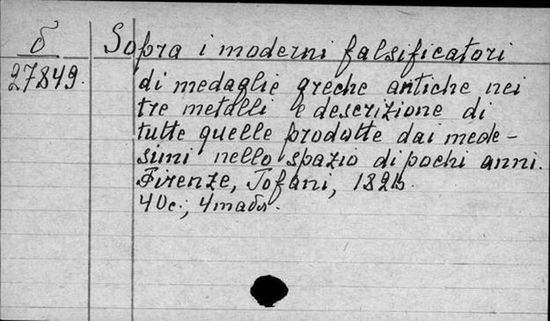 δ Sopra i moderni falsificatori
27849. di medaglie greche antiche nei
tre metalli e descrizione di
tutte quelle prodotte dai mede-
simi nello spazio di pochi anni.
Firenze, Tofani,
40c., 4 табл.